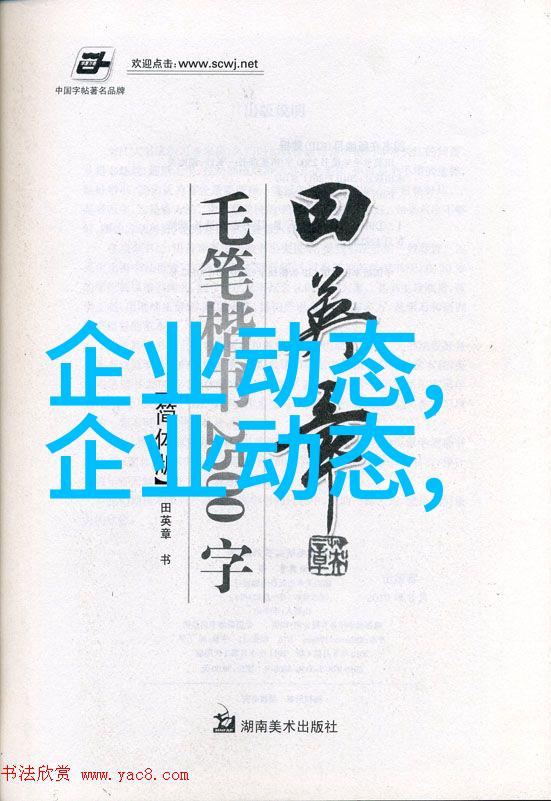 欢迎点击:www.scwj.net
中国字帖著名品牌
田英章
毛笔楷书2500字
【简体版】
田英章 书
企业动态,
企业动态,
湖南美术出版社
书法欣赏 www.yac8.com